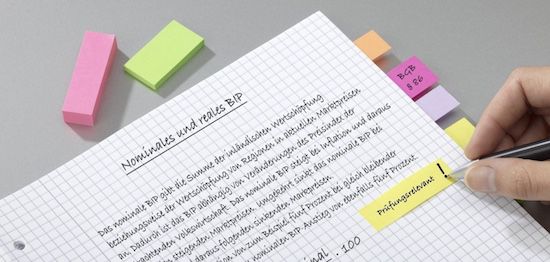 Nominales und reales BIP
Das nominale BIP gibt die Summe der inländischen Wertschöpfung
beziehungsweise der Wertschöpfung von Regionen in aktuellen Marktpreisen
an. Dadurch ist das BIP abhängig von Veränderungen des Preisindex der
achtenden Volkswirtschaft. Das nominale BIP zeigt bei Inflation und daraus
steigenden Marktpreisen. Umgekehrt sinkt das nominale BIP bei
daraus folgenden sinkenden Marktpreisen.
tion von zum Beispiel fünf Prozent bei gleich bleibender
nominalen BIP-Anstieg von ebenfalls fünf Prozent
nal . 100
BGB
§ 86
Prüfungsrelevant !